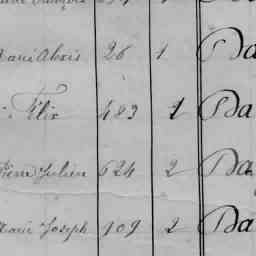 Marie Alexis 26 1 Ba
Félix 483 1 Ba
Pierre Julien 624 2 Ba
Marie Joseph 109 2 Ba